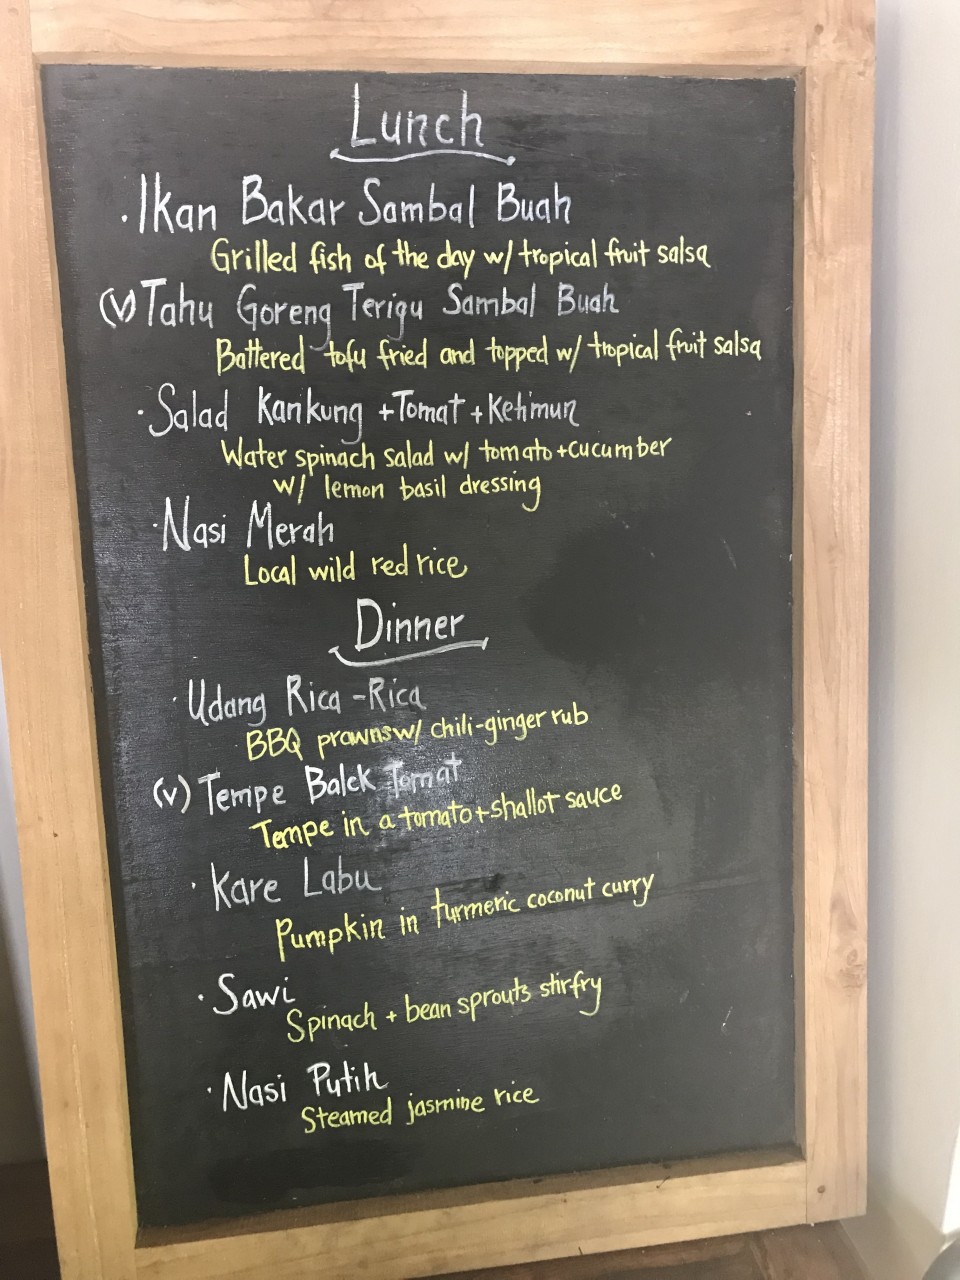 Lunch
· Ikan Bakar Sambal Buah
Grilled fish of the day w/ tropical fruit salsa
(V) Tahu Goreng Terigu Sambal Buah
Battered tofu fried and topped w/ tropical fruit salsa
· Salad Kankung + Tomat + Ketimun
Water spinach salad w/ tomato + cucumber
w/ lemon basil dressing
· Nasi Merah
Local wild red rice
Dinner
· Udang Rica - Rica
BBQ prawns w/ chili-ginger rub
(v) Tempe Balek Tomat
Tempe in a tomato + shallot sauce
· Kare Labu
Pumpkin in turmeric coconut curry
· Sawi
Spinach + bean sprouts stirfry
· Nasi Putih
Steamed jasmine rice